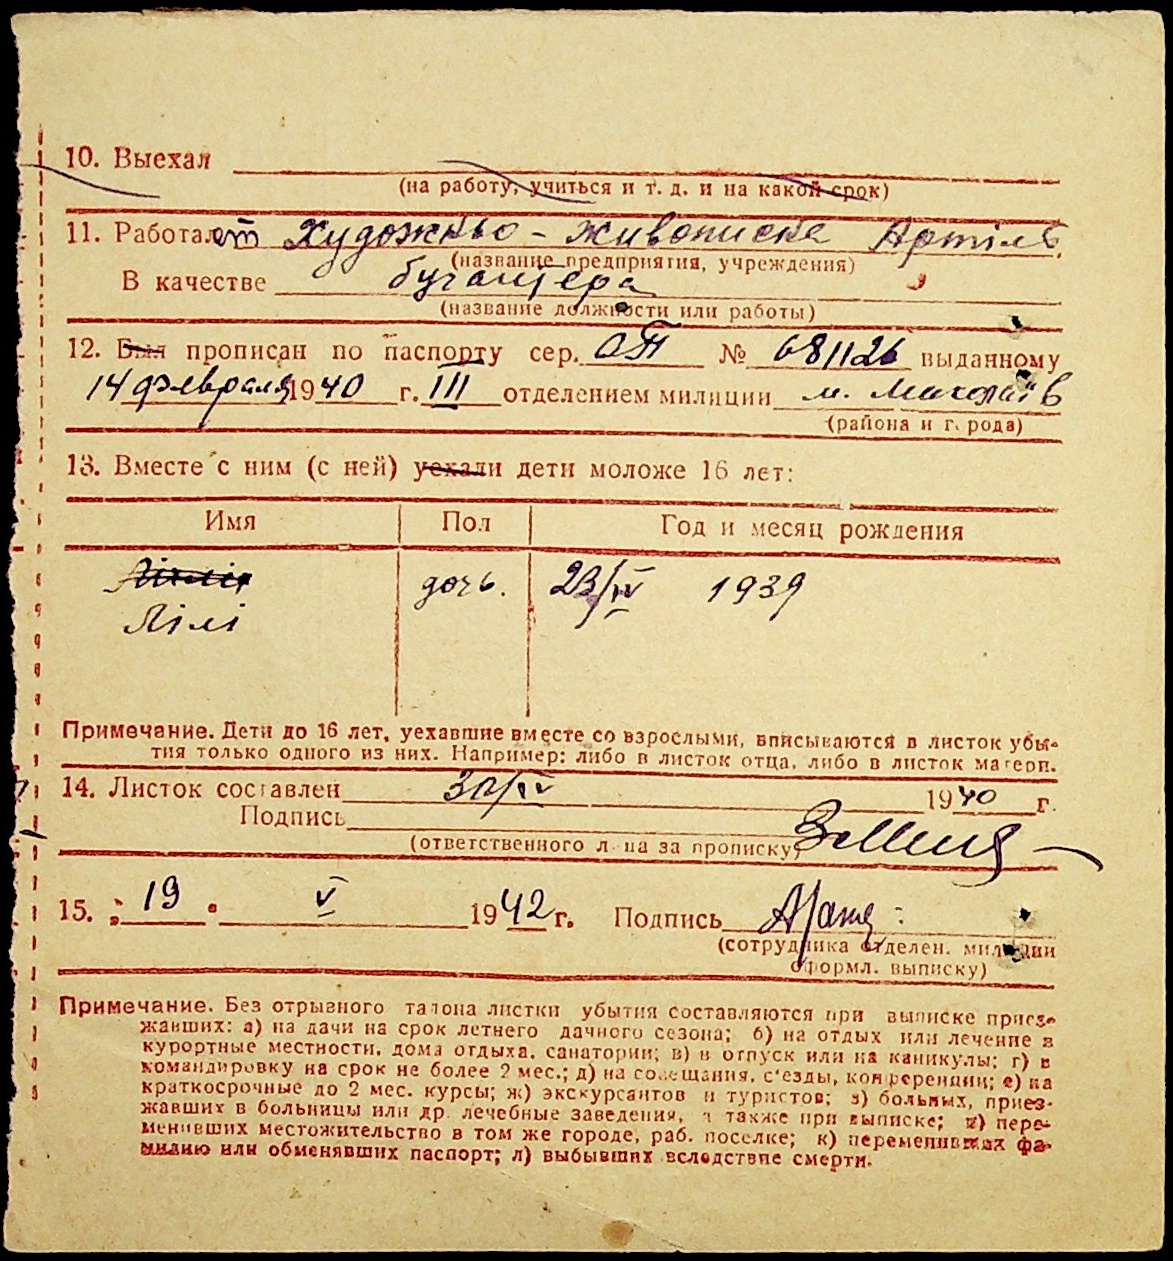 10. Выехал
(на работу, учиться и т. д. и на какой срок)
11. Работает Художньо - живописна Артіль
(название предприятия, учреждения)
В качестве бугалтера
(название должности или работы)
12. Был прописан по паспорту сер. ОТ № 681126 выданному
14 февраля 1940 г. III отделением милиции м. Миколаїв
(района и города)
13. Вместе с ним (с ней) уехали дети моложе 16 лет:
Имя Пол Год и месяц рождения
дочь. 23/IV 1939
Лілі
Примечание. Дети до 16 лет, уехавшие вместе со взрослыми, вписываются в листок убы-
тия только одного из них. Например: либо в листок отца, либо в листок матери.
14. Листок составлен 30/IV 1940 г.
Подпись
(ответственного лица за прописку)
15. " 19 " V 1942 г. Подпись
(сотрудника отделен. милиции
оформл. выписку)
Примечание. Без отрывного талона листки убытия составляются при выписке приез-
жавших: а) на дачи на срок летнего дачного сезона; б) на отдых или лечение в
курортные местности, дома отдыха, санатории; в) в отпуск или на каникулы; г) в
командировку на срок не более 2 мес.; д) на совещания, с'езды, конференции; е) на
краткосрочные до 2 мес. курсы; ж) экскурсантов и туристов; з) больных, приез-
жавших в больницы или др. лечебные заведения, а также при выписке; и) пере-
менивших местожительство в том же городе, раб. поселке; к) переменивших фа-
милию или обменявших паспорт; л) выбывших вследствие смерти.